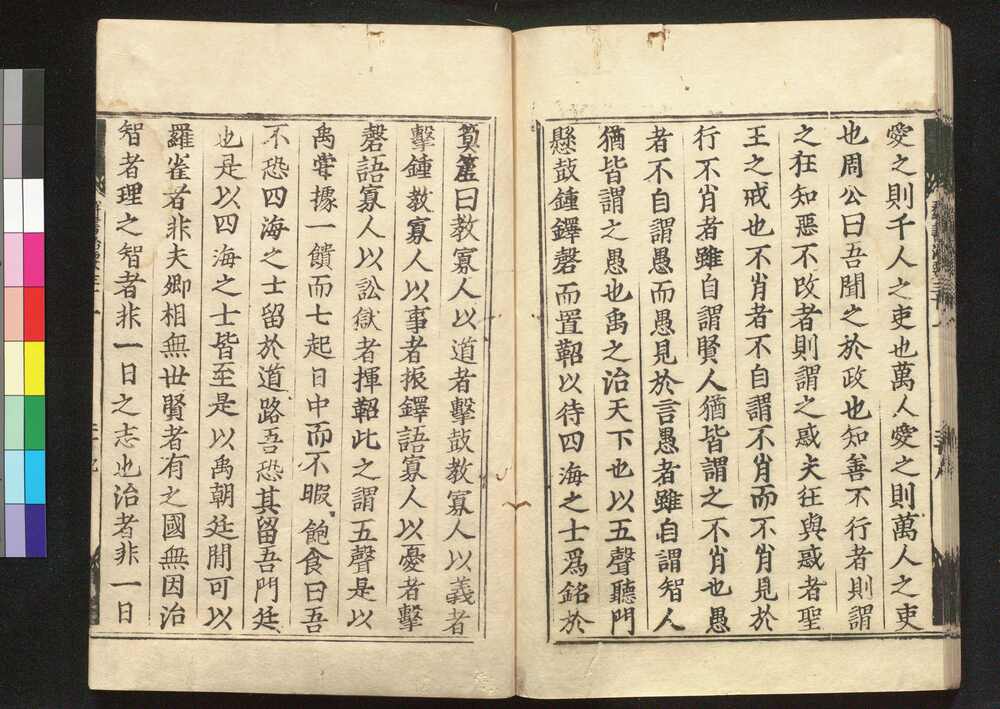 愛之則千人之吏也萬人愛之則萬人之吏
也周公曰吾聞之於政也知善不行者則謂
之狂知惡不改者則謂之惑夫狂與惑者聖
王之戒也不肖者不自謂不肖而不肖見於
行不肖者雖自謂賢人猶皆謂之不肖也愚
者不自謂愚而愚見於言愚者雖自謂智人
猶皆謂之愚也禹之治天下也以五聲聽門
懸鼓鍾鐸磬而置鞀以待四海之士爲銘於
簨簴曰教寡人以道者擊鼓教寡人以義者
擊鍾教寡人以事者振鐸語寡人以憂者擊
磬語寡人以訟獄者揮鞀此之謂五聲是以
禹甞據一饋而七起日中而不暇飽食曰吾
不恐四海之士留於道路吾恐其留吾門廷
也是以四海之士皆至是以禹朝廷閒可以
羅雀者非夫卿相無世賢者有之國無因治
智者理之智者非一日之志也治者非一日